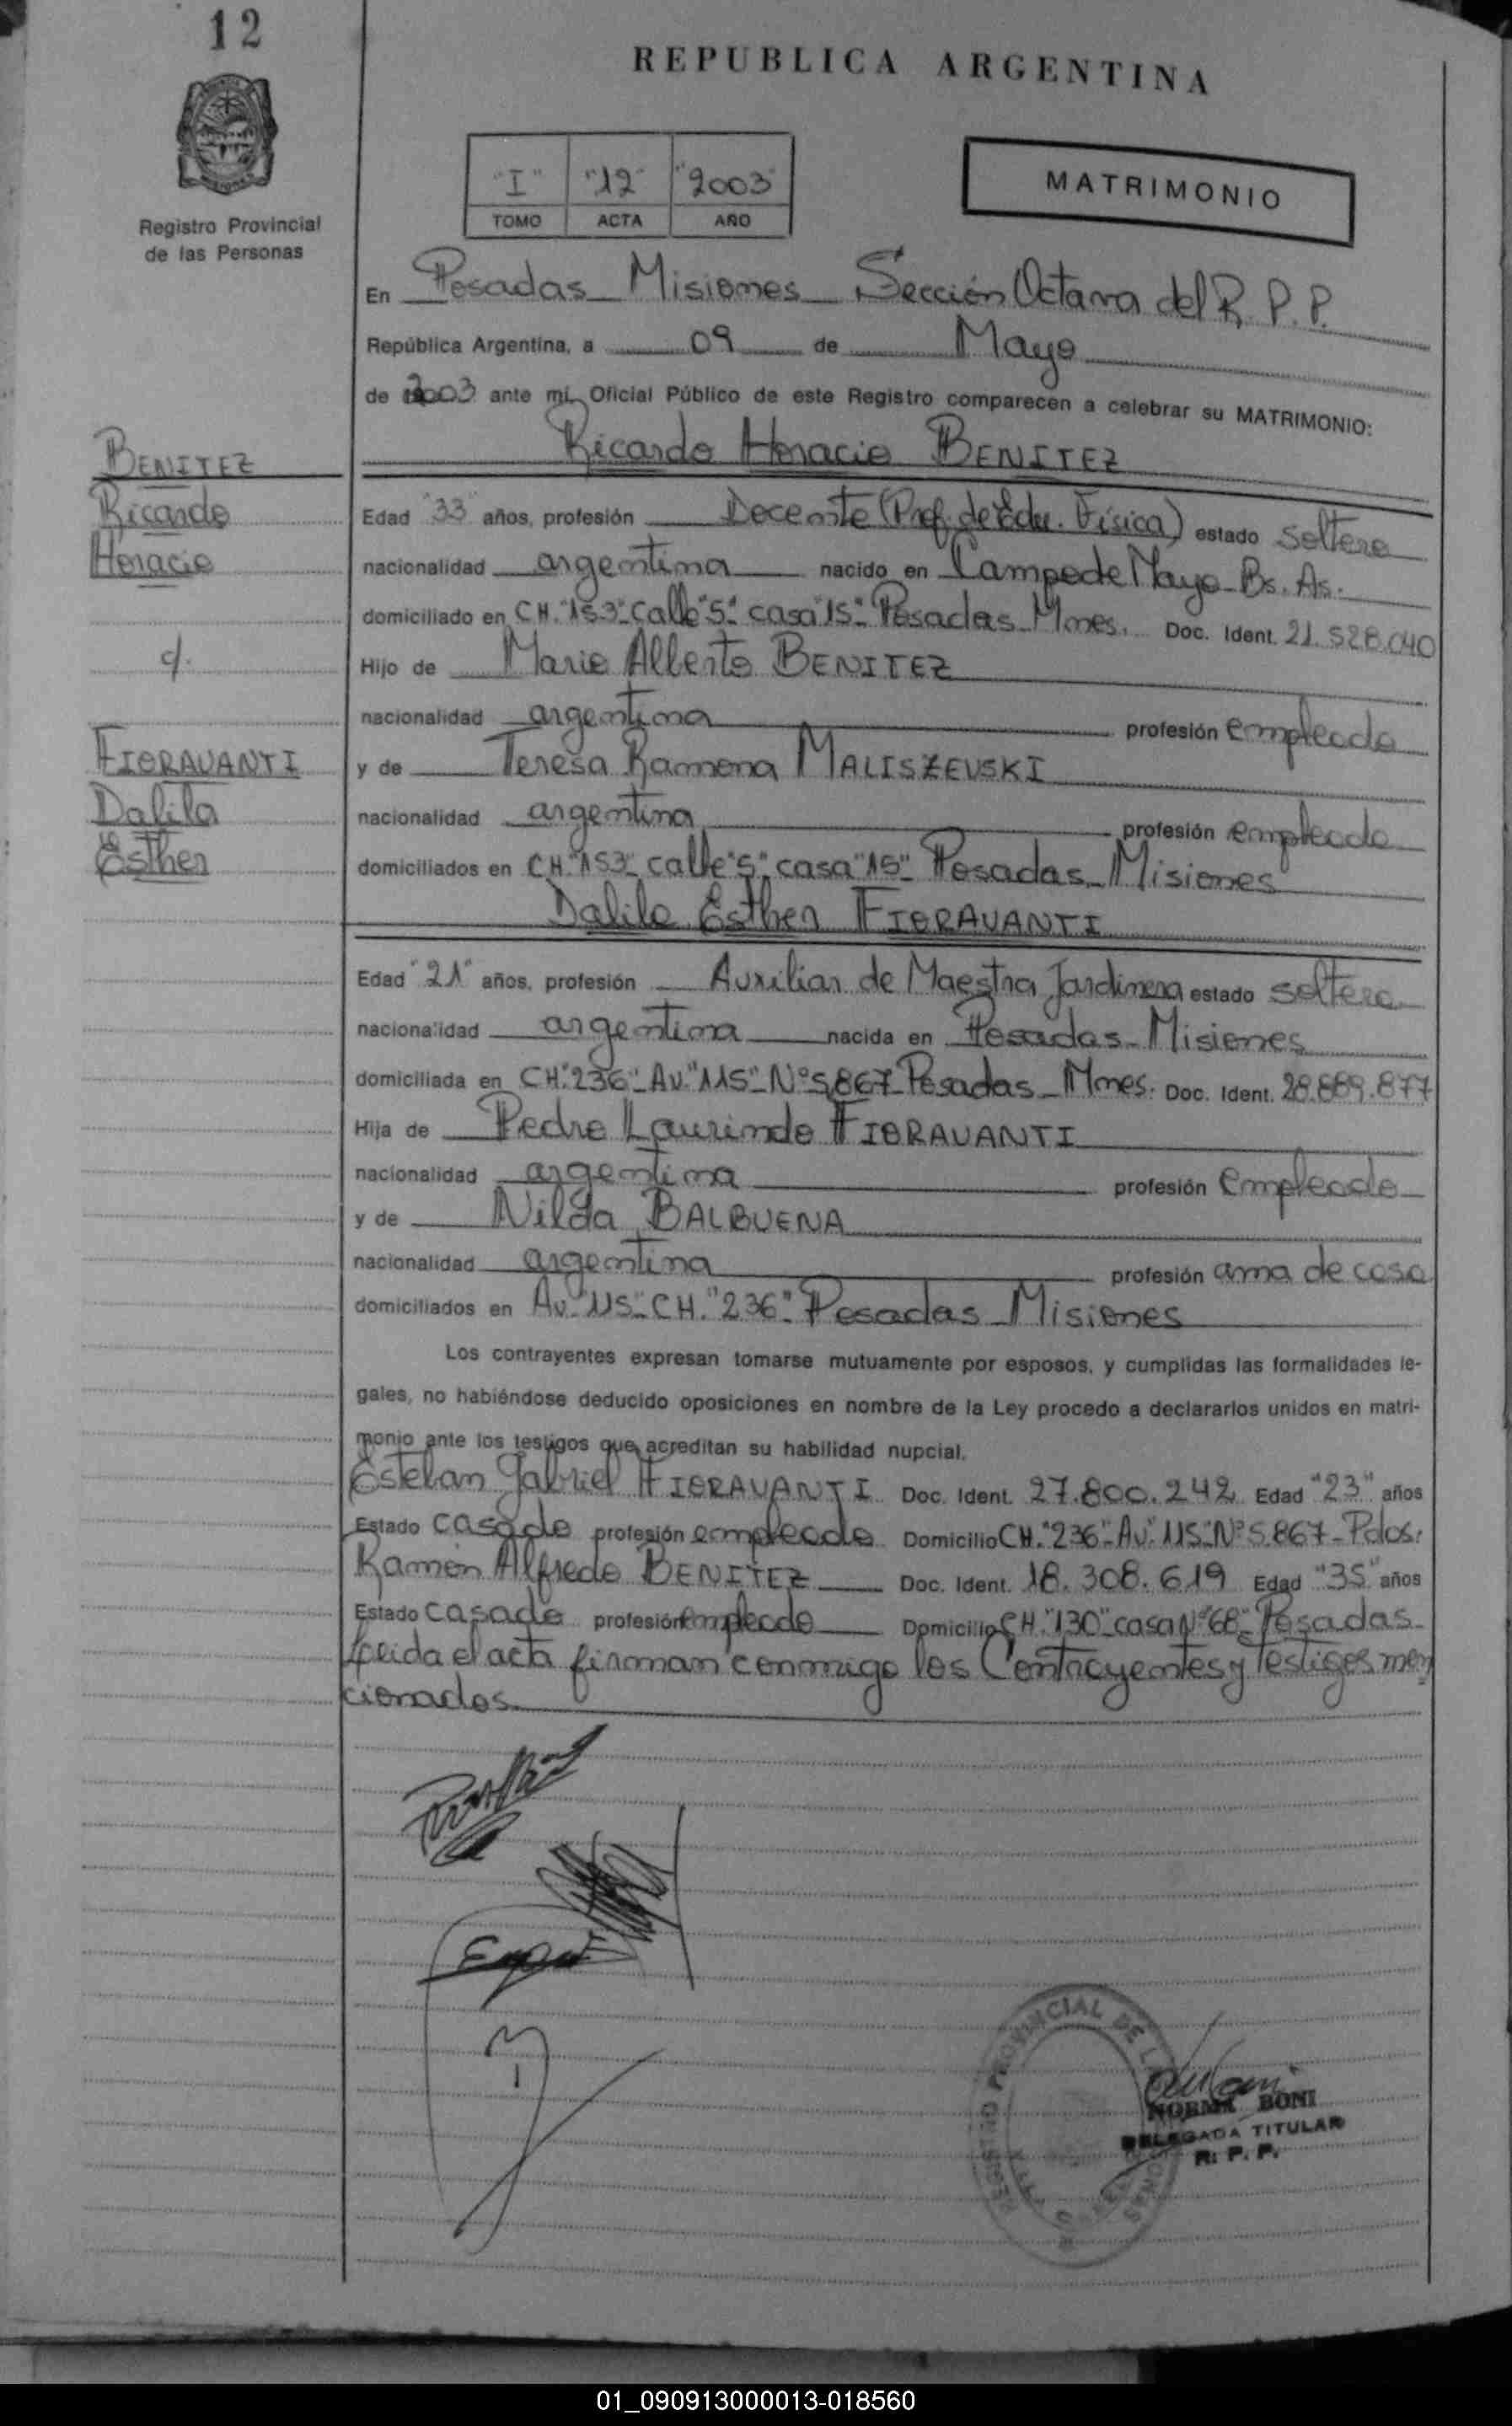 12
REPUBLICA ARGENTINA
Registro Provincial
de las Personas
"I" "12" "2003"
TOMO ACTA AÑO
MATRIMONIO
En Posadas - Misiones - Sección Octava del R. P. P.
República Argentina, a 09 de Mayo
de 2003 ante mí, Oficial Público de este Registro comparecen a celebrar su MATRIMONIO:
Ricardo Horacio BENITEZ
BENITEZ
Ricardo
Horacio
c/.
FIORAVANTI
Dalila
Esther
Edad "33" años, profesión Docente (Prof. de Edu. Física) estado soltero
nacionalidad argentina nacido en Campo de Mayo - Bs. As.
domiciliado en CH. "153" - Calle "5" - casa "15" - Posadas - Mnes. Doc. Ident. 21.528.040
Hijo de Mario Alberto BENITEZ
nacionalidad argentina profesión empleado
y de Teresa Ramona MALISZEVSKI
nacionalidad argentina profesión empleada
domiciliados en CH. "153" - calle "5" - casa "15" - Posadas - Misiones
Dalila Esther FIORAVANTI
Edad "21" años, profesión Auxiliar de Maestra Jardinera estado soltera
nacionalidad argentina nacida en Posadas - Misiones
domiciliada en CH. "236" - Av. "115" - Nº 5.867 - Posadas - Mnes. Doc. Ident. 28.889.877
Hija de Pedro Laurindo FIORAVANTI
nacionalidad argentina profesión empleado
y de Nilda BALBUENA
nacionalidad argentina profesión ama de casa
domiciliados en Av. "115" - CH. "236" - Posadas - Misiones
Los contrayentes expresan tomarse mutuamente por esposos, y cumplidas las formalidades le-
gales, no habiéndose deducido oposiciones en nombre de la Ley procedo a declararlos unidos en matri-
monio ante los testigos que acreditan su habilidad nupcial.
Esteban Gabriel FIORAVANTI Doc. Ident. 27.800.242 Edad "23" años
Estado casado profesión empleado Domicilio CH. "236" - Av. "115" - Nº 5.867 - Pdas.
Ramón Alfredo BENITEZ Doc. Ident. 18.308.619 Edad "35" años
Estado casado profesión empleado Domicilio CH. "130" - casa Nº "68" - Posadas
Leida el acta firman conmigo los Contrayentes y Testigos men
cionados.
REGISTRO PROVINCIAL DE LAS PERSONAS
NORMA BONI
DELEGADA TITULAR
R. P. P.
01_090913000013-018560